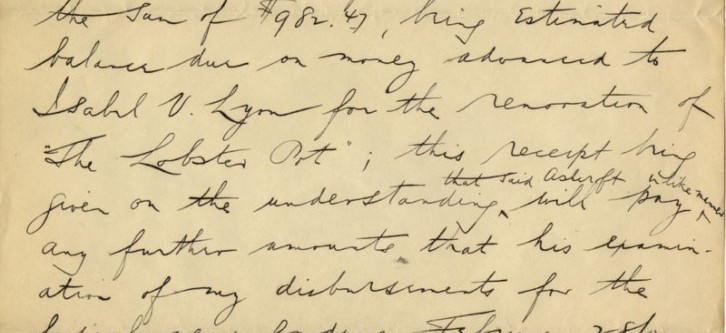 the sum of $982.47, being Estimated
balance due on money advanced to
Isabel V. Lyon for the renovation of
"The Lobster Pot"; this receipt being
that said Ashcroft in like manner
given on the understanding, will pay
any further amounts that his examin-
ation of my disbursements for the